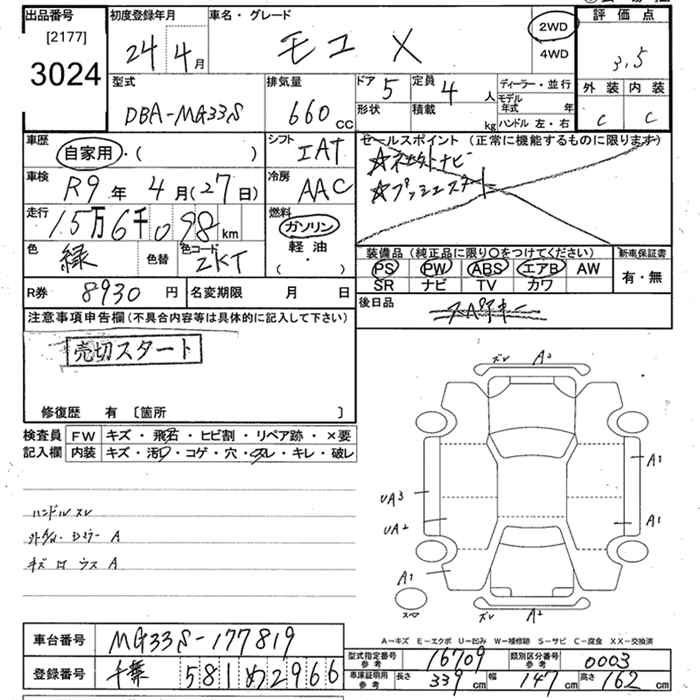 出品番号
[2177]
3024
初度登録年月
24 4月
車名・グレード
モコ X
2WD
4WD
評価点
3.5
外装 内装
C C
型式
DBA-MG33S
排気量
660 CC
ドア 5
定員 4 人
形状
積載 kg
ディーラー・並行
モデル年式 年
ハンドル 左・右
車歴
自家用・( )
シフト
IAT
セールスポイント(正常に機能するものに限ります)
☆社外ナビ
☆プッシュスタート
車検
R9年 4月(27日)
冷房
AAC
走行
15万6千098km
燃料
ガソリン
軽油
( ・ )
色
緑
色替
色コード
ZKT
装備品(純正品に限り〇をつけてください)
PS PW ABS エアB AW
SR ナビ TV カワ
新車保証書
有・無
R券 8930円
名変期限 月 日
後日品
注意事項申告欄(不具合内容等は具体的に記入して下さい)
売切スタート
修復歴 有 〔箇所 〕
検査員記入欄
FW キズ・飛石・ヒビ割・リペア跡・×要
内装 キズ・汚レ・コゲ・穴・スレ・キレ・破レ
ハンドルスレ
A
キズ A
ズレ A2
A1
UA3
UA2
A1
A1
スペア
ズレ A2
A-キズ E-エクボ U-凹み W-補修跡 S-サビ C-腐食 XX-交換済
車台番号 MG33S-177819
登録番号 千葉 581 め 2966
型式指定番号 参考 16709
類別区分番号 参考 0003
車庫証明用 参考 長さ 339cm 幅 147cm 高さ 162cm